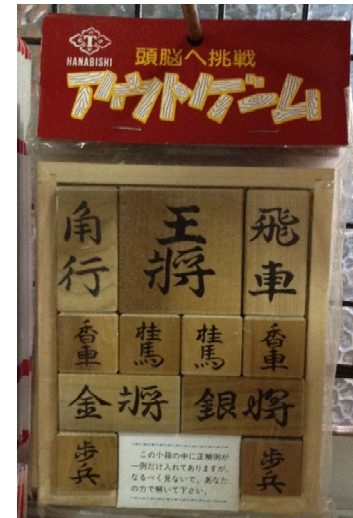 T
HANABISHI
頭脳へ挑戦
アウトゲーム
角行
王将
飛車
香車
桂馬
桂馬
香車
金将
銀将
歩兵
この小箱の中に正解例が
一例だけ入れてありますが、
なるべく見ないで、あなた
の力で解いて下さい。
歩兵